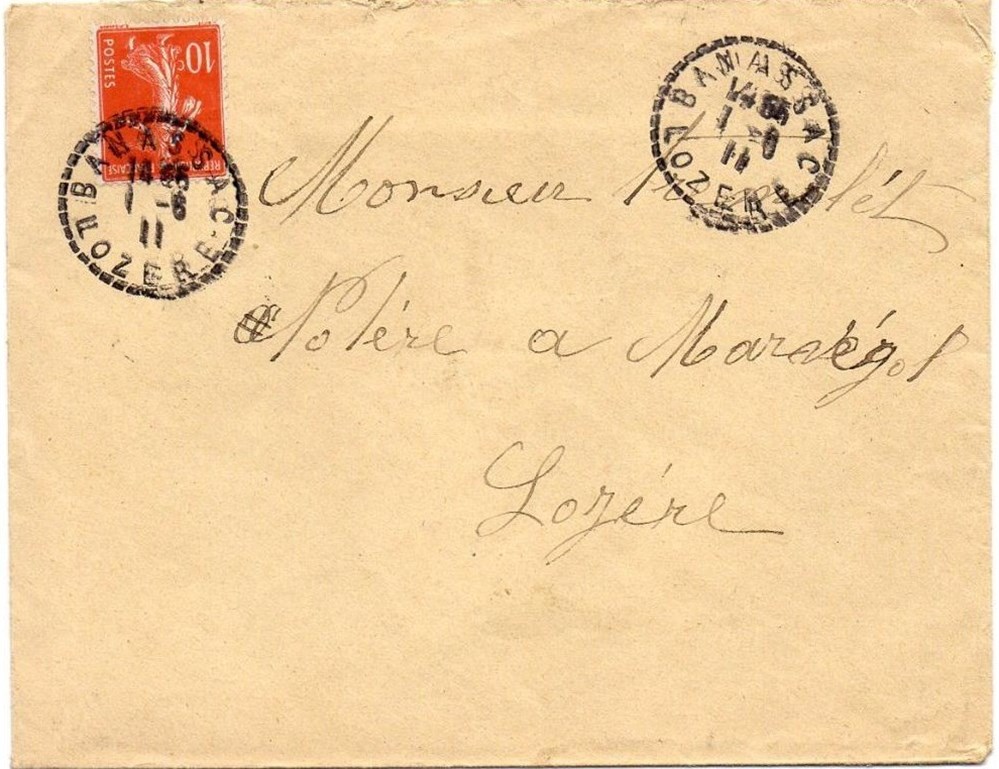 10c
POSTES
REPUBLIQUE FRANÇAISE
BANASSAC
14 35
1 - 6
11
LOZERE
BANASSAC
14 35
1 - 6
11
LOZERE
Monsieur
Notère a Marvégol
Lozére